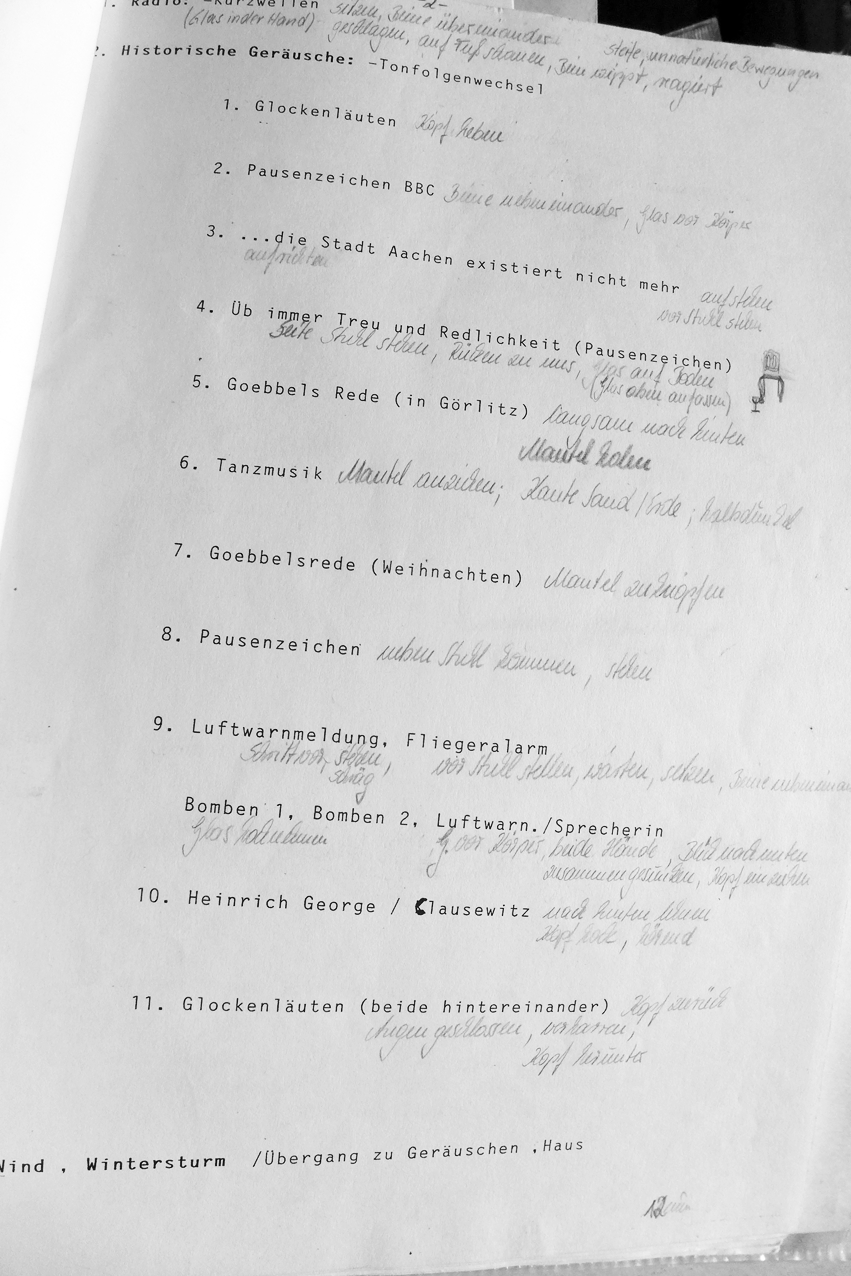 -2-
1. Radio: -Kurzwellen setzen, Beine übereinander
(Glas in der Hand) geschlagen, auf Fuß schauen, Bein wippt, reagiert
steife, unnatürliche Bewegungen
2. Historische Geräusche: -Tonfolgenwechsel
1. Glockenläuten Kopf heben
2. Pausenzeichen BBC Beine nebeneinander, Glas vor Körper
3. ...die Stadt Aachen existiert nicht mehr aufstehen
aufrichten vor Stuhl stehen
4. Üb immer Treu und Redlichkeit (Pausenzeichen)
Seite Stuhl stehen, Rücken zu uns, Glas auf Boden
(Glas oben anfassen)
5. Goebbels Rede (in Görlitz) langsam nach hinten
Mantel holen
6. Tanzmusik Mantel anziehen; Kante Sand/Erde; halbdunkel
7. Goebbelsrede (Weihnachten) Mantel zuknöpfen
8. Pausenzeichen neben Stuhl kommen, stehen
9. Luftwarnmeldung, Fliegeralarm
Schritt vor, stehen, vor Stuhl stellen, warten, setzen, Beine nebeneinan
schräg
Bomben 1, Bomben 2, Luftwarn./Sprecherin
Glas hochnehmen G. vor Körper, beide Hände, Blick nach unten
zusammengesunken, Kopf einziehen
10. Heinrich George / Clausewitz nach hinten lehnen
Kopf hoch, hörend
11. Glockenläuten (beide hintereinander) Kopf zurück
Augen geschlossen, verharren,
Kopf herunter
Wind , Wintersturm /Übergang zu Geräuschen ,Haus
12